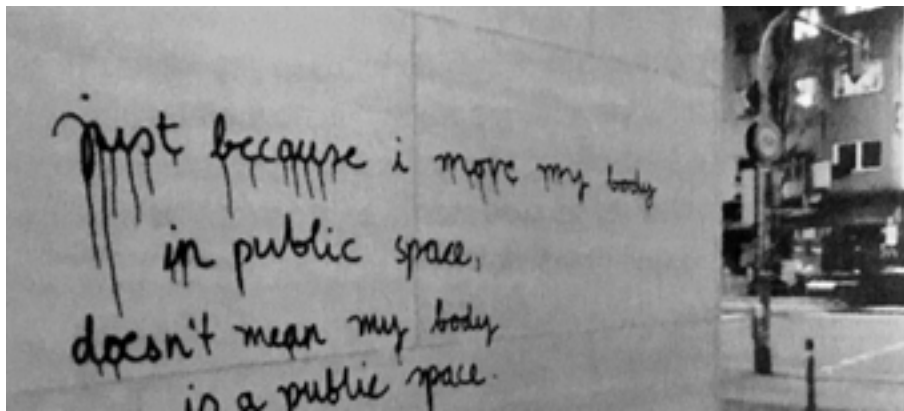 just because i move my body
in public space,
doesn't mean my body
is a public space.